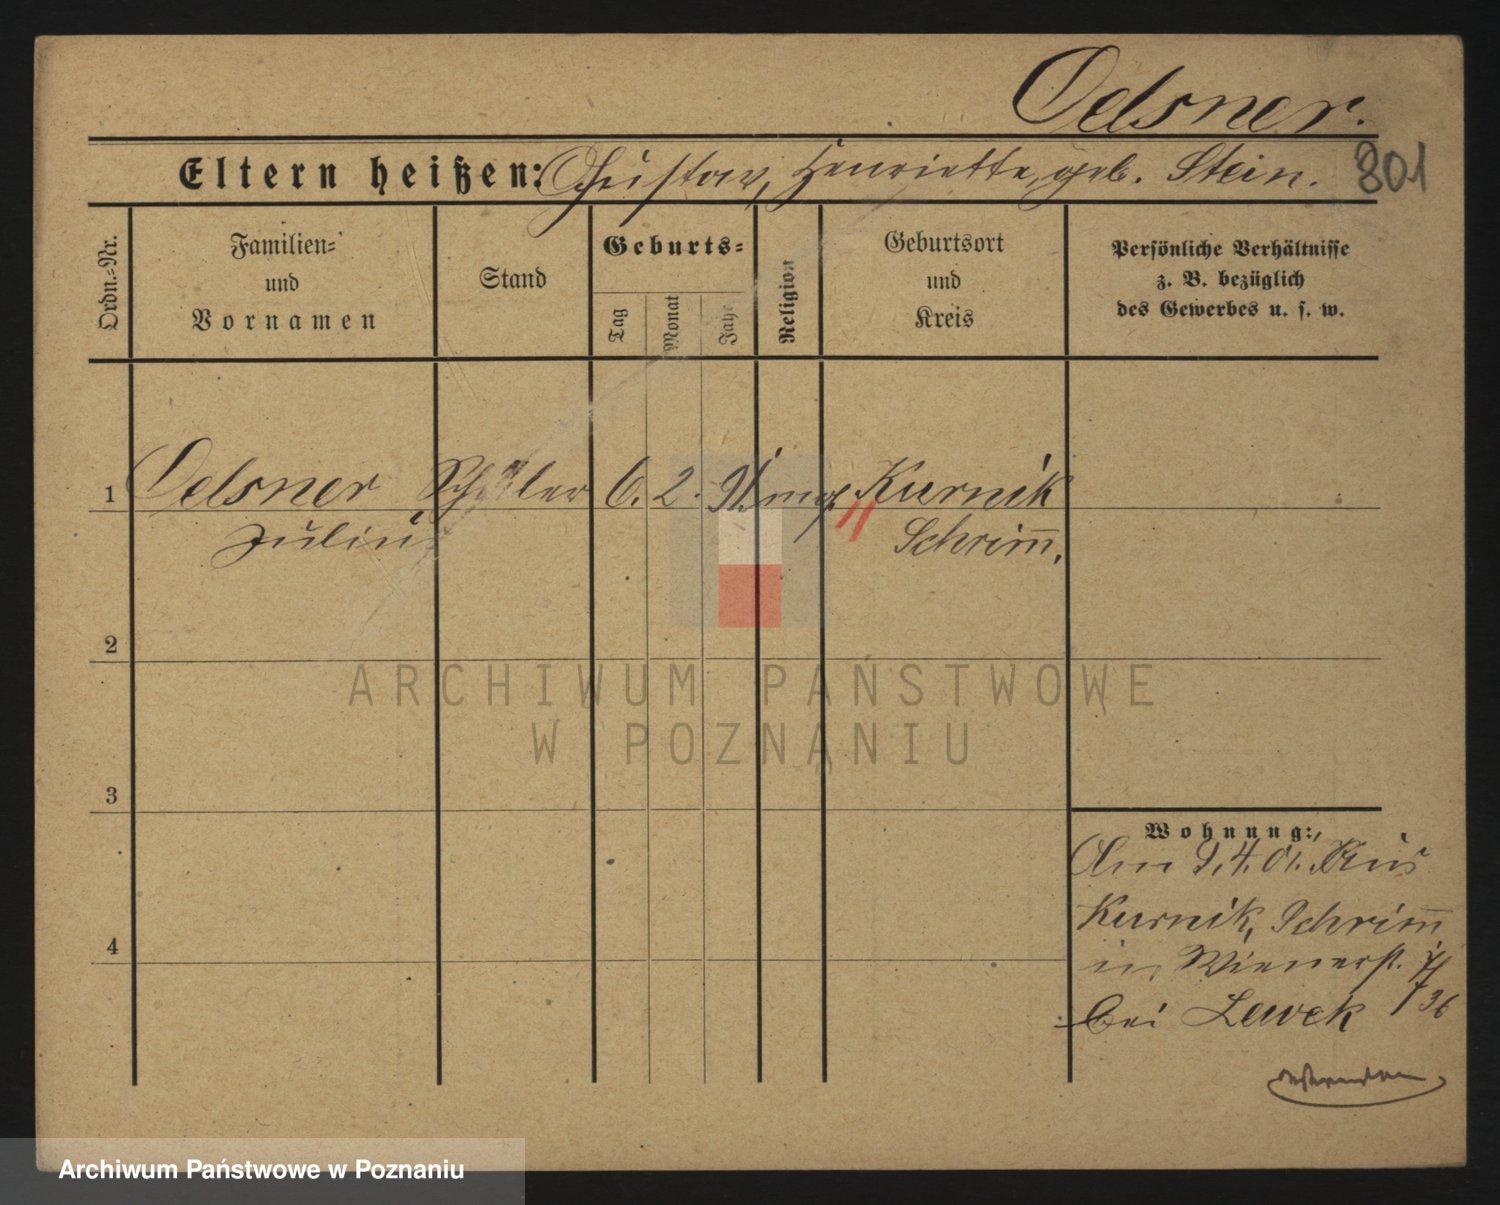 Oelsner.
Eltern heißen: Gustav, Henriette, geb. Stein.
801
Ordn.=Nr.
Familien=
und
Vornamen
Stand
Geburts=
Tag
Monat
Jahr
Religion
Geburtsort
und
Kreis
Persönliche Verhältnisse
z. B. bezüglich
des Gewerbes u. s. w.
1 Oelsner Schüler 6. 2. 91 mos. Kurnik
Julius Schrimm,
2
ARCHIWUM PAŃSTWOWE
W POZNANIU
3
Wohnung:
Am 9.4.01. Aus
Kurnik, Schrimm
in Wienerst.
bei Lewek
4
Archiwum Państwowe w Poznaniu